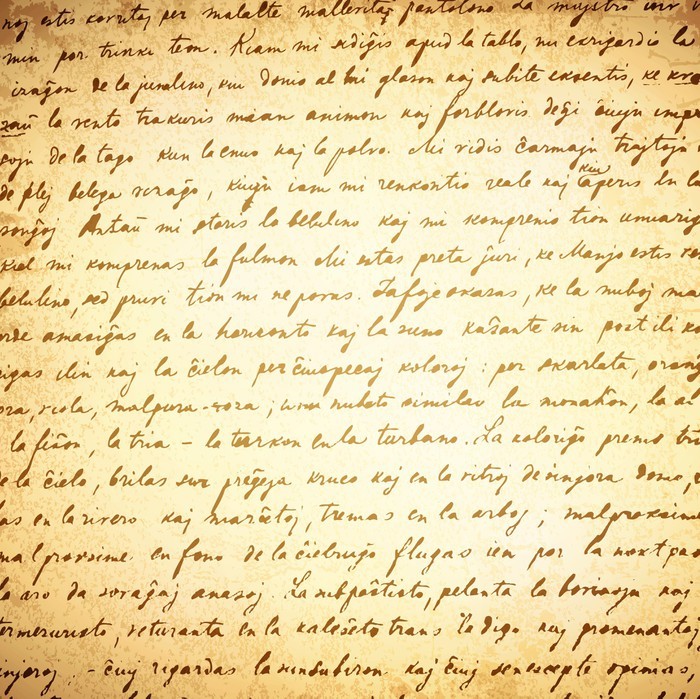 noj estis kovritaj per malalte
min por trinki teon. Kiam mi sidiĝis apud la tablo, mi ekrigardis la
vizaĝon de la junulino, kiu donis al mi glason kaj subite eksentis, ke
la vento trakuris mian animon kaj forblovis deĝi ĉiujn
de la tago kun la enuo kaj la polvo. Mi vidis ĉarmajn trajtojn
de plej belega vizaĝo, kiujn iam mi renkontis reale kaj kiu aperis en la
sonĝoj Antaŭ mi staris la belulino kaj mi komprenis tion
kiel mi komprenas la fulmon Mi estas preta ĵuri, ke Manjo estis
belulino, sed pruvi tion mi ne povas. Tafoje okazas, ke la nuboj
amasiĝas en la horizonto kaj la suno kaŝante sin post ili
ilin kaj la ĉielon per ĉiuspecaj koloroj: per skarlata,
viola, malpura-roza; unu nubeto similas la monaĥon, la
la fiŝon, la tria - la turkon en la turbano. La koloriĝo premis
de la ĉielo, brilas sur preĝeja kruco kaj en la vitroj de sinjora domo,
en la rivero kaj marĉetoj, tremas en la arboj; malproksime
malproksime en fono de la ĉielruĝo flugas ien por la
da sovaĝaj anasoj. La subpaŝtisto, pelanta la bovinojn kaj
termezuristo, veturanta en la kaleŝeto trans la digo kaj promenantaj
sinjoroj, - ĉiuj rigardas la sunsubiron kaj ĉiuj senescepte opinias,